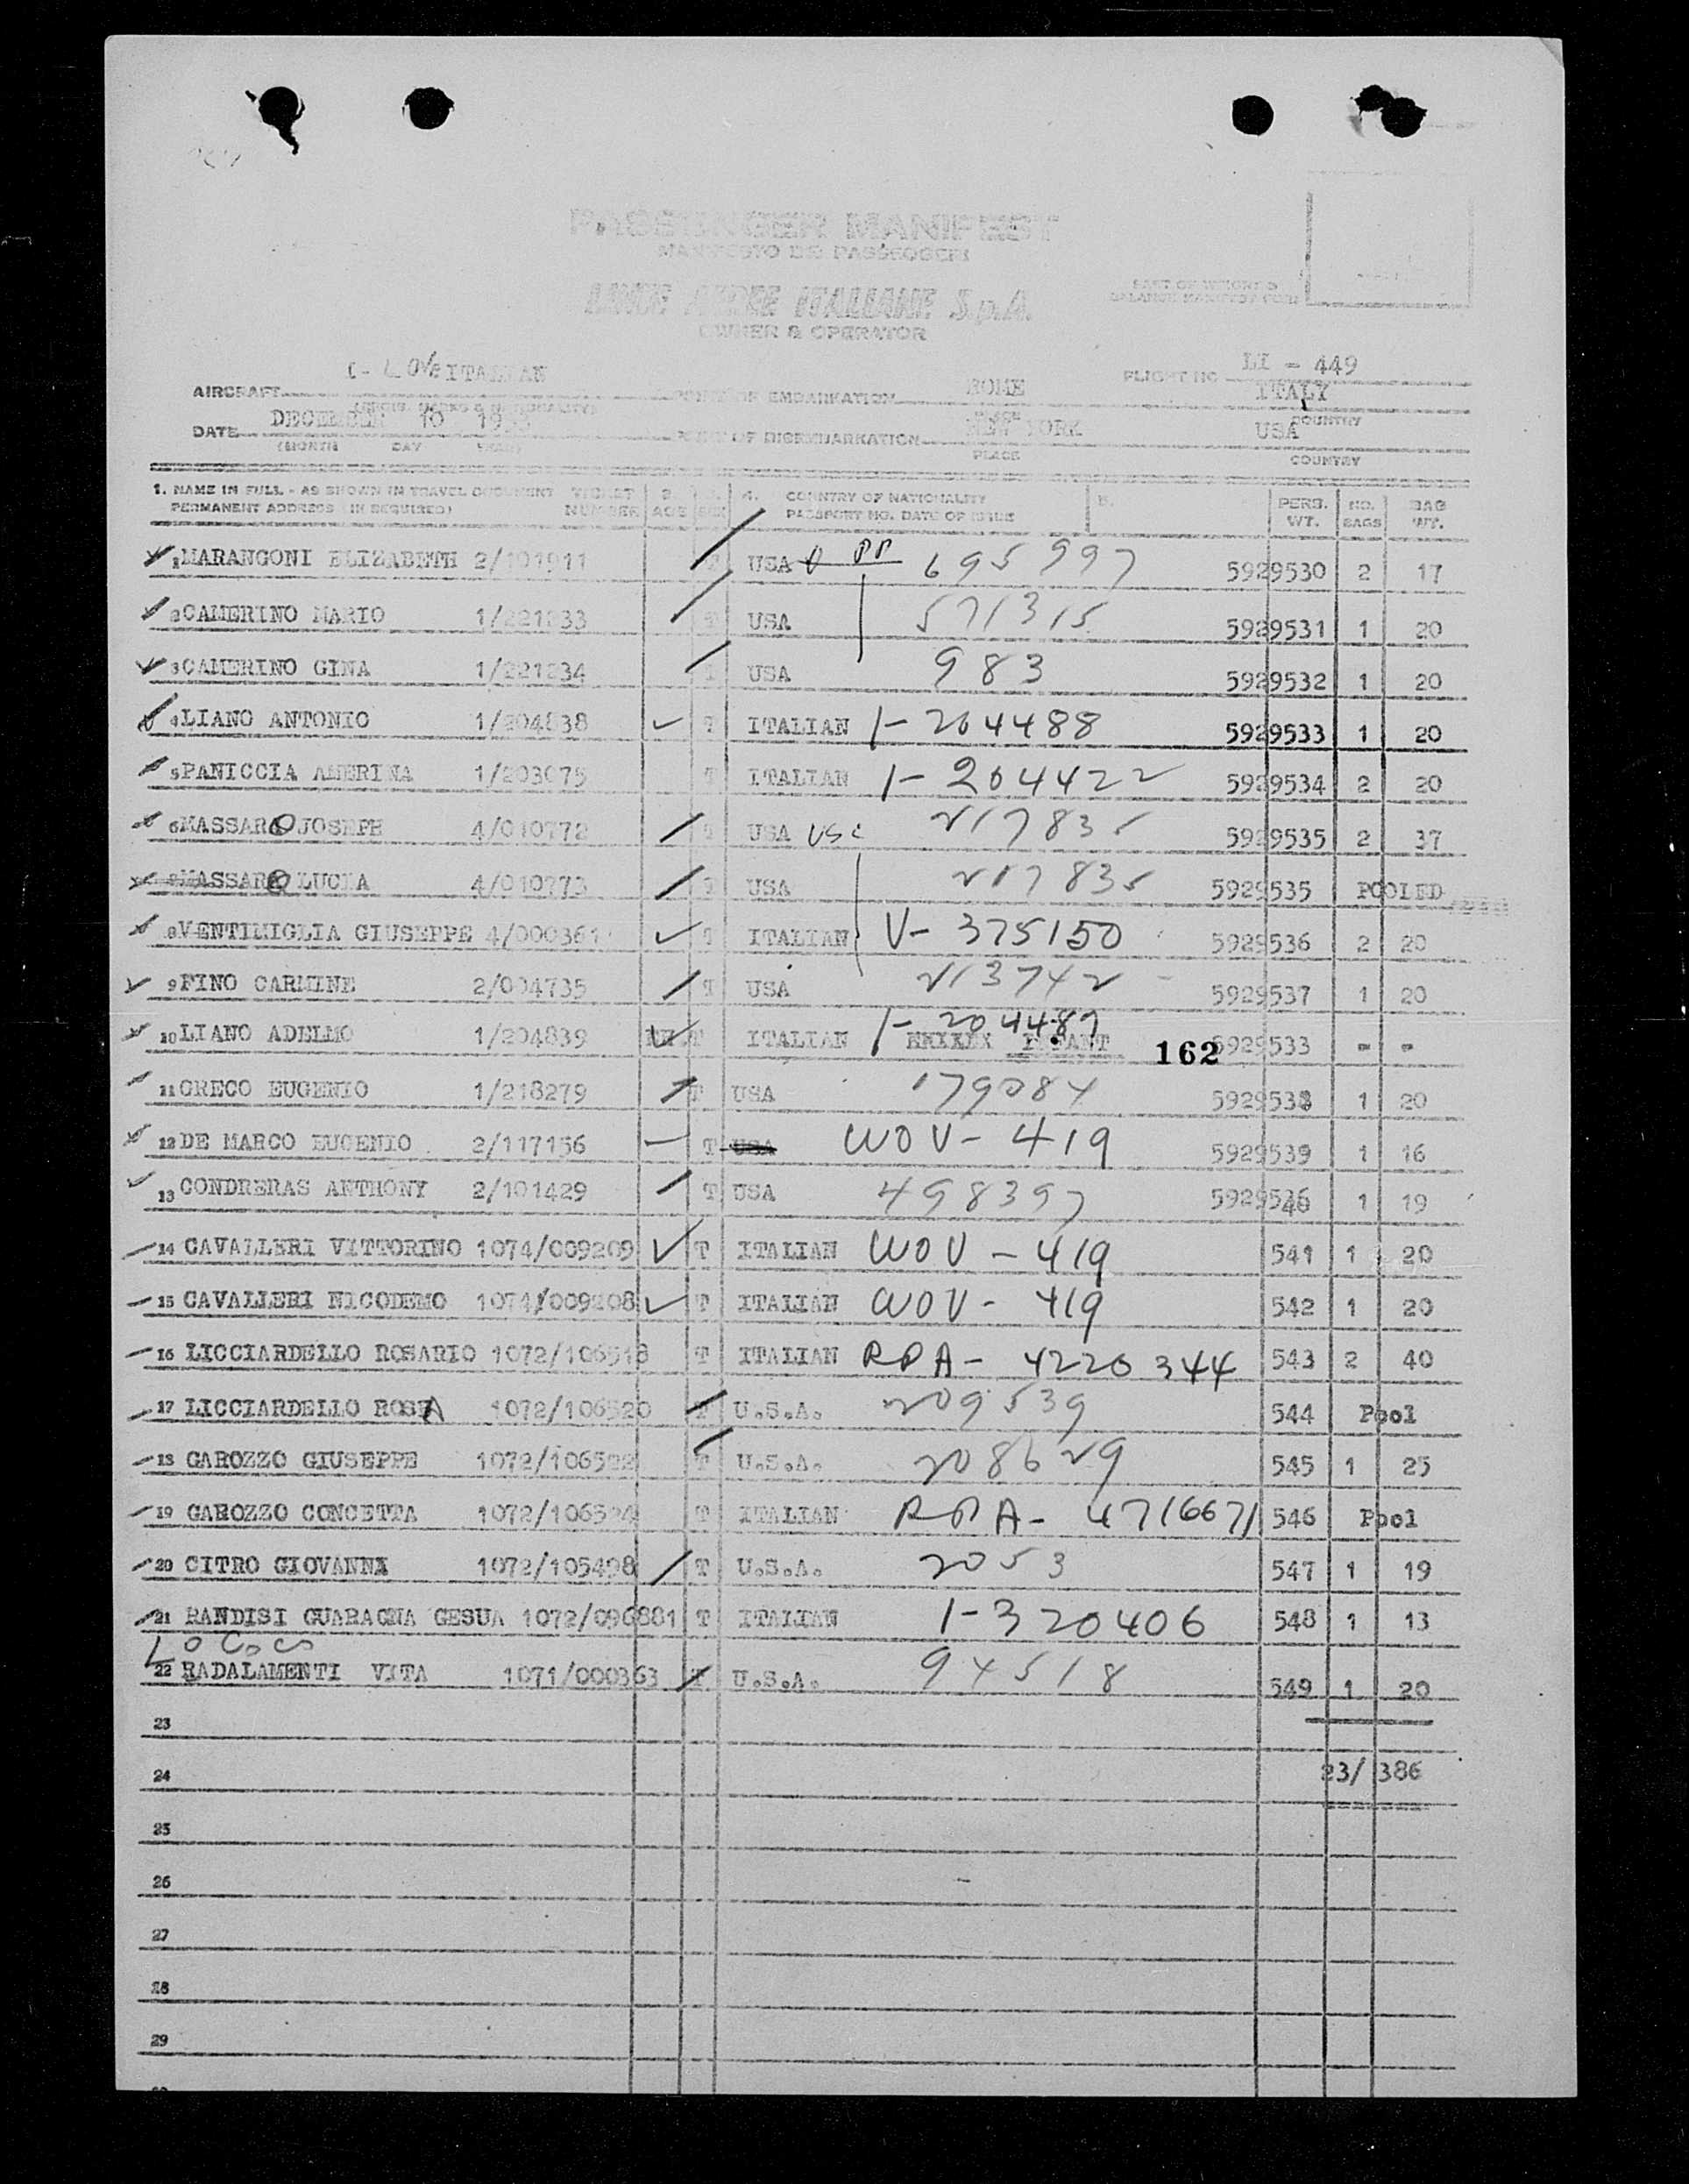 PASSENGER MANIFEST
MANIFESTO DEI PASSEGGERI
LINEE AEREE ITALIANE S.p.A.
OWNER & OPERATOR
PART OF WEIGHT &
BALANCE MANIFEST
AIRCRAFT ITALIAN POINT OF EMBARKATION ROME FLIGHT NO LI - 449
ITALY
PLACE COUNTRY
DATE DECEMBER 10 POINT OF DISEMBARKATION NEW YORK USA
(MONTH DAY YEAR) PLACE COUNTRY
1. NAME IN FULL - AS SHOWN IN TRAVEL DOCUMENT TICKET 2. 3. 4. COUNTRY OF NATIONALITY 5. PERS. NO. BAG
PERMANENT ADDRESS (IN REQUIRED) NUMBER AGE SEX PASSPORT NO. DATE OF ISSUE WT. BAGS WT.
1 MARANGONI ELIZABETH 2/101911 USA PP 695997 5929530 2 17
2 CAMERINO MARIO T USA 571315 5929531 1 20
3 CAMERINO GINA 1/221234 T USA 983 5929532 1 20
4 LIANO ANTONIO 1/204838 T ITALIAN 1-204488 5929533 1 20
5 PANICCIA AMERINA 1/203075 T ITALIAN 1-204422 5929534 2 20
6 MASSARO JOSEPH 4/010772 T USA USC 217835 5929535 2 37
MASSARO LUCIA 4/010773 T USA 217835 5929535 POOLED
8 VENTIMIGLIA GIUSEPPE 4/000361 T ITALIAN V-375150 5929536 2 20
9 FINO CARMINE 2/004735 T USA 213742 5929537 1 20
10 LIANO ADELMO 1/204839 T ITALIAN 1-204489 INFANT 162 5929533 - -
11 GRECO EUGENIO 1/218279 T USA 179084 5929538 1 20
12 DE MARCO EUGENIO 2/117156 T USA WOV-419 5929539 1 16
13 CONDRERAS ANTHONY 2/101429 T USA 498397 1 19
14 CAVALLERI VITTORINO 1074/009209 T ITALIAN WOV-419 541 1 20
15 CAVALLERI NICODEMO 1074/009208 T ITALIAN WOV-419 542 1 20
16 LICCIARDELLO ROSARIO 1072/106518 T ITALIAN RPA-4220344 543 2 40
17 LICCIARDELLO ROSA 1072/106520 T U.S.A. 209539 544 Pool
18 GAROZZO GIUSEPPE 1072/106522 T U.S.A. 208629 545 1 25
19 GAROZZO CONCETTA 1072/106524 T ITALIAN RPA-4716671 546 Pool
20 CITRO GIOVANNI 1072/105498 T U.S.A. 2053 547 1 19
21 RANDISI GUARAGNA GESUA 1072/096881 T ITALIAN 1-320406 548 1 13
Lo Coco
22 BADALAMENTI VITA 1071/000363 T U.S.A. 94518 549 1 20
23
24 23/ 386
25
26
27
28
29